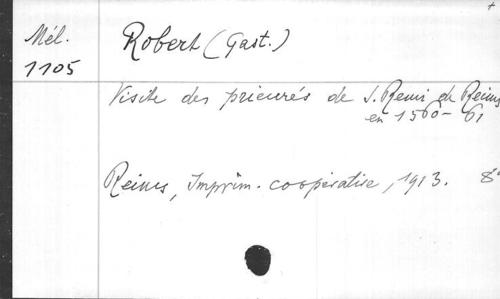 Mél.
1105
Robert (Gast.)
Visite des prieurés de S. Remi de Reims
en 1560-61
Reims, Imprim. coopérative, 1913. 8°